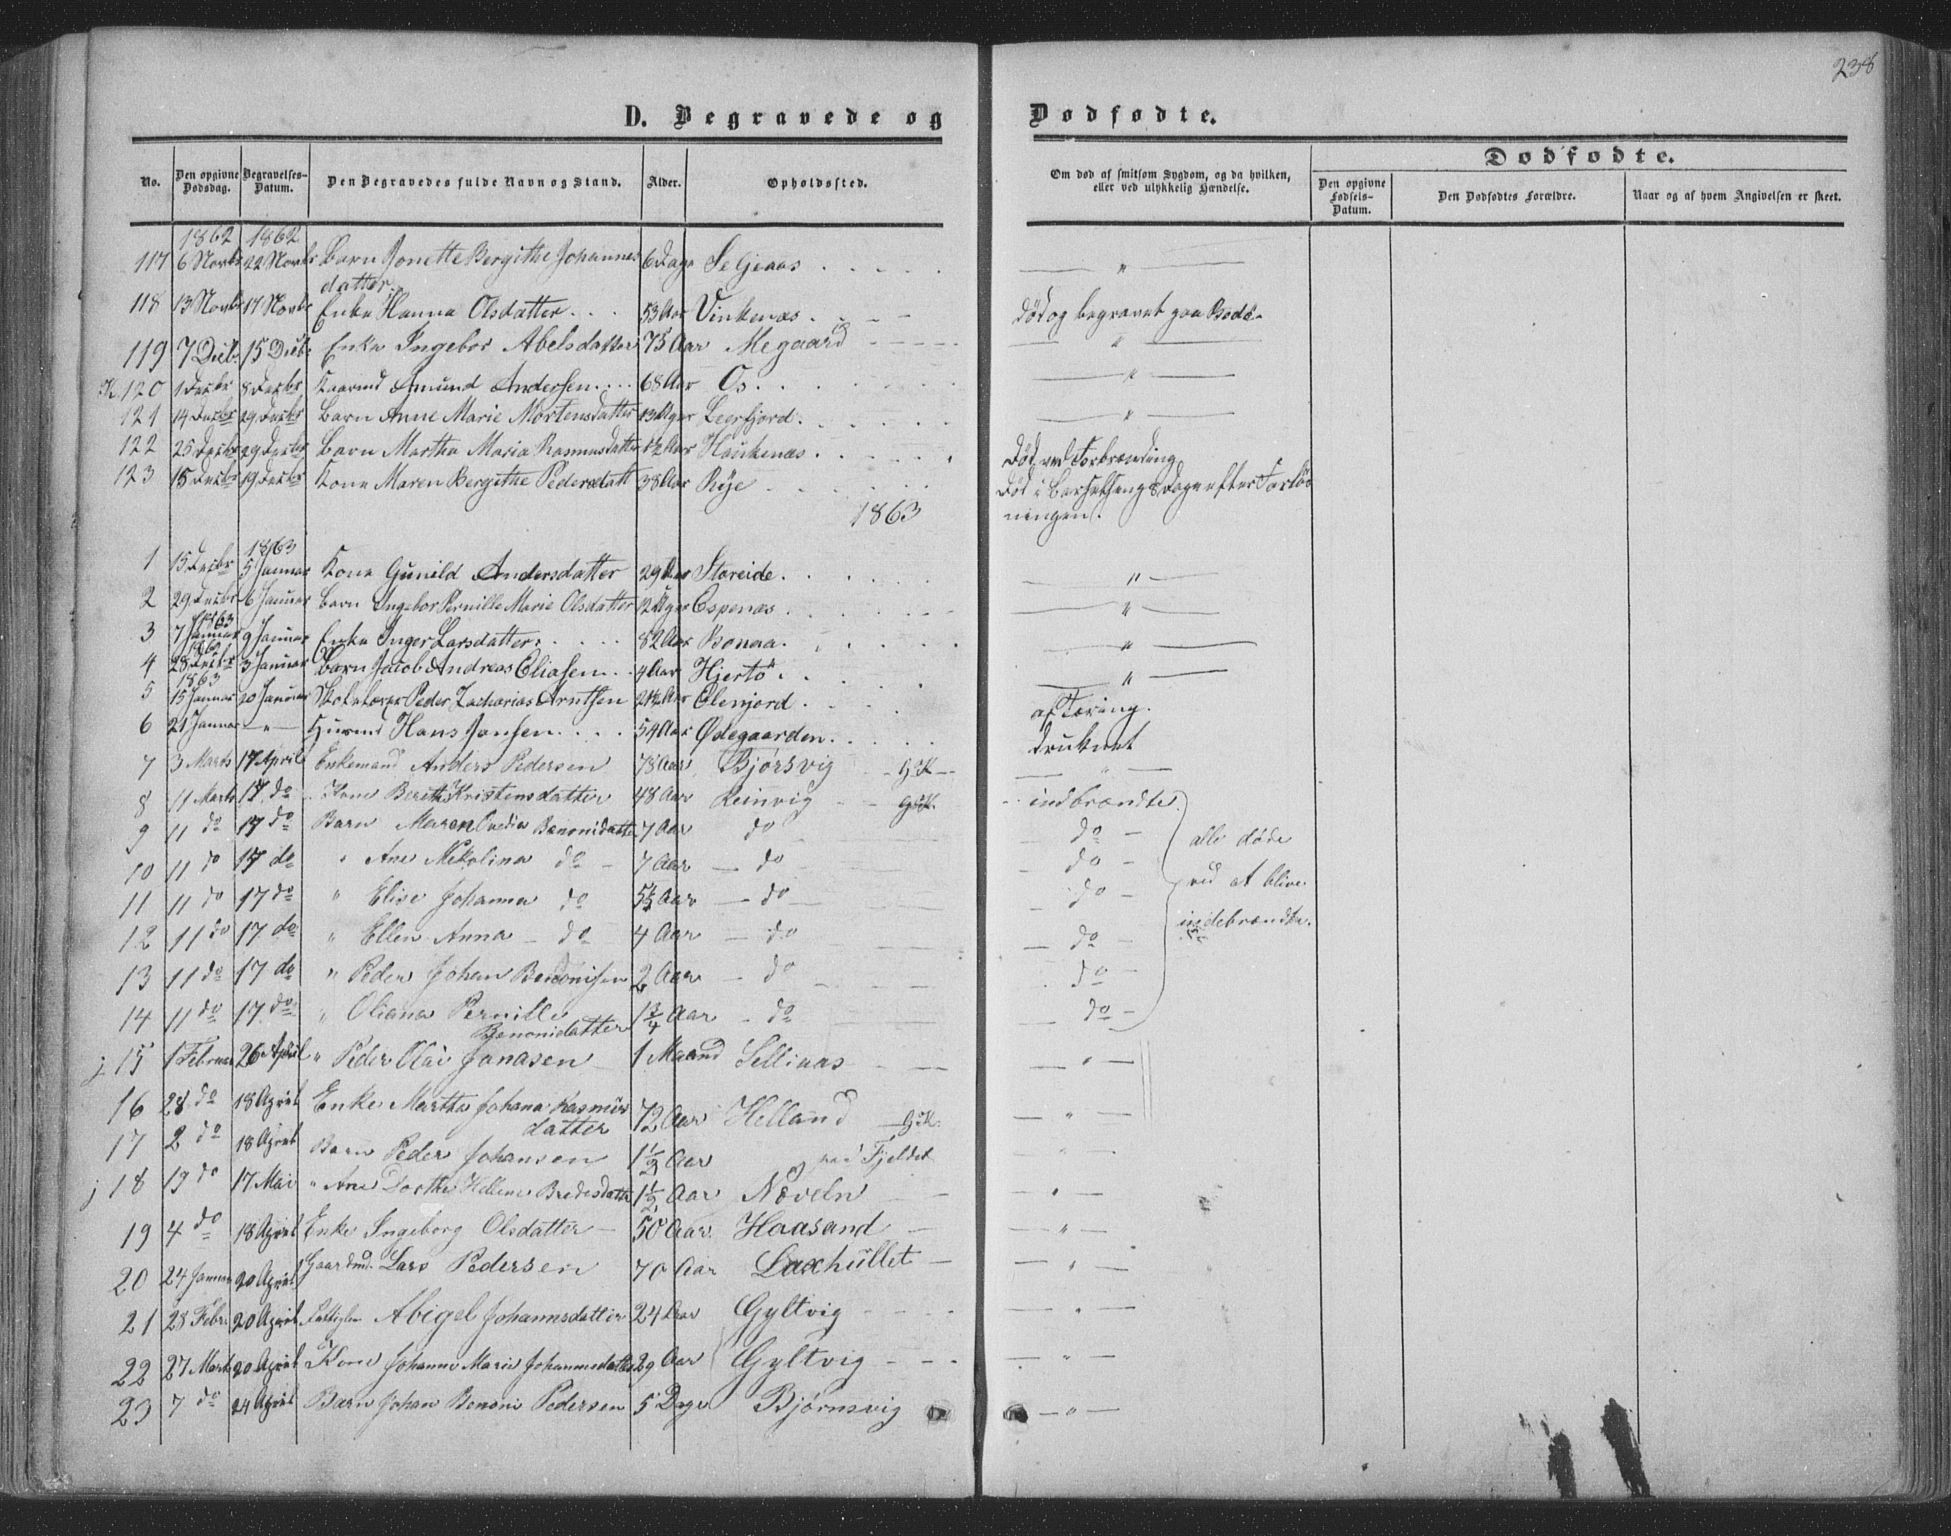 238
D. Begravede og Dødfødte.
No. Den opgivne Dødsdag. Begravelses-Datum. Den Begravedes fulde Navn og Stand. Alder. Opholdssted. Om død af smitsom Sygdom, og da hvilken, eller ved ulykkelig Hændelse. Dødfødte.
Den opgivne Fødsels-Datum. Den Dødfødtes Forældre. Naar og af hvem Angivelsen er skeet.
1862 1862
117 6 Novbr 22 Novbr Barn Jonette Bergithe Johannes datter 6 Dage "
118 13 Novbr 17 Novbr Enke Hanna Olsdatter 53 Aar Vinkenæs død og begravet paa Bodø
119 7 Decb. 15 Decb. Enke Ingebor Abelsdatter 75 Aar Megaard "
K. 120 1 Decbr 8 Decbr Kaarmd Amund Andersen 68 Aar Os "
121 14 Decbr 29 Decbr Barn Anne Marie Mortensdatter 13 Uger Leerfjord "
122 26 Decbr 29 Decbr Barn Martha Maria Rasmusdatter 1½ Aar Haukenæs Død ved Forbrænding
123 15 Decbr 19 Decbr Kone Maren Bergithe Pedersdatt 38 Aar Rye Død i Barselseng 8 Dage efter Forløs
1863 ningen.
1863
1 15 Decbr 5 Januar Kone Gunild Andersdatter 29 Aar Storeide "
2 29 Decbr 6 Januar Barn Ingebor Pernille Marie Olsdatter 12 Uger Espenæs "
1863
3 7 Januar 9 Januar Enke Inger Larsdatter 82 Aar Bonaa "
1862
4 28 Decbr 3 Januar Barn Jacob Andreas Eliasen 4 Aar Hjertø "
1863
5 15 Januar 20 Januar Skolelærer Peder Zacharias Arntsen 21½ Aar af Tæring.
6 21 Januar — " — Huusmd Hans Jansen 54 Aar Ødegaarden druknet
7 3 Marts 17 April Enkemand Anders Pedersen 78 Aar Bjørsvig "
8 11 Marts 17 do Kone Bereth Kristensdatter 48 Aar Leinvig indbrændte
9 11 do 17 do Barn Maren Ovedia Benonidatter 7 Aar do do alle døde
10 11 do 17 do " Ane Nikolina do 7 Aar do do
11 11 do 17 do " Elise Johanna do 5½ Aar do do ved at blive
12 11 do 17 do " Ellen Anna do 4 Aar do do indebrændte.
13 11 do 17 do " Peder Johan Benonisen 2 Aar do do
14 11 do 17 do " Oliana Pernille Benonidatter 1¾ Aar do do
j 15 1 Februar 26 April " Peder Olai Jonasen 1 Maaned Selliaas "
16 28 do 18 April Enke Martha Johana Rasmus datter 72 Aar Helland "
17 2 do 18 April Barn Peder Johansen 1½ Aar ved Fjeldet "
j 18 19 do 17 Mai " Ane Dorthe Hellene Bredesdatter 1½ Aar Næveln "
19 4 do 18 April Enke Ingeborg Olsdatter 50 Aar Haasand "
20 24 Januar 20 April Gaardmd. Lars Pedersen 70 Aar Laxhullet "
21 28 Febr. 20 April Abigel Johannsdatter 24 Aar Gyltvig "
22 27 Marts 20 April Kone Johanne Marie Johannesdatter 29 Aar Gyltvig "
23 7 do 24 April Barn Johan Benoni Pedersen 5 Dage Bjørnsvig "